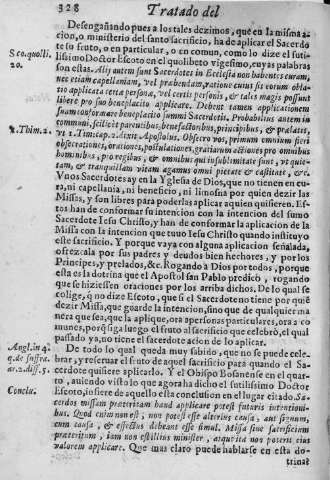 328 Tratado del
Desengañando pues a los tales dezimos, que en la misma ac
cion, o ministerio del santo sacrificio, ha de aplicar el Sacerdo
te su fruto, o en particular, o en comun, como lo dize el sutilis
simo Doctor Escoto en el quolibeto vigesimo, cuyas palabras
Sco. quolli.
20.
son estas. Alij autem sunt Sacerdotes in Ecclesia non habentes curam,
nec etiam capellaniam, vel præbendam, ratione cuius sit eorum obla-
tio applicata certæ personæ, vel certis personis, & tales magis possunt
libere pro suo beneplacito applicare. Debent tamen applicationem
suam conformare beneplacito summi Sacerdotis. Probabilius autem in
communi, scilicet parentibus, benefactoribus, principibus, & prælatis,
1. Thim. 2.
vt 1. Tim. cap. 2. dixit Apostolus. Obsecro vos, primum omnium fieri
obsecrationes, orationes, postulationes, gratiarum actiones pro omnibus
hominibus, pro regibus, & omnibus qui in sublimitate sunt, vt quie-
tam, & tranquillam vitam agamus omni pietate & castitate, &c.
Vnos Sacerdotes ay en la Yglesia de Dios, que no tienen en cu-
ra, ni capellania, ni beneficio, ni limosna por quien dezir las
Missas, y son libres para poderlas aplicar aquien quisieren. Es-
tos han de conformar su intencion con la intencion del sumo
Sacerdote Iesu Christo, y han de conformar la aplicacion de la
Missa con la intencion que tuuo Iesu Christo quando instituyo
este sacrificio. Y porque vaya con alguna aplicacion señalada,
ofrezcala por sus padres y deudos bien hechores, y por los
Principes, y prelados, &c. Rogando a Dios por todos, porque
esta es la dotrina que el Apostol san Pablo predicò, rogando
que se hiziessen oraciones por los arriba dichos. De lo qual se
colige, q̃ no dize Escoto, que si el Sacerdote no tiene por quiē
dezir Missa, que guarde la intencion, sino que de qualquier ma
nera que sea, que la aplique, ora por personas particulares, ora a co
munes, porq̃ siga luego el fruto al sacrificio que celebrò, el qual
passado ya, no tiene el sacerdote accion de lo aplicar.
Angl. in 4.
q. de suffra.
ar. 2. diff. 5.
De todo lo qual queda muy sabido, que no se puede cele-
brar, y reseruar el fruto de aquel sacrificio para quando el Sa-
cerdote quisiere aplicarlo. Y el Obispo Bosanense en el quar-
to, auiendo visto lo que agora ha dicho el sutilissimo Doctor
Conclu.
Escoto, infiere de aquello esta conclusion en el lugar citado. Sa-
cerdos missam præteritam haud applicare potest futuris intentioni-
bus. Quod enim non est, non potest esse alterius causa, aut signum,
cum causa, & effectus debeant esse simul. Missa sine sacrificium
præteritum, iam non est illius minister, atqui ita non poterit eius
valorem applicare. Que mas claro puede hablarse en esta do-
trina?